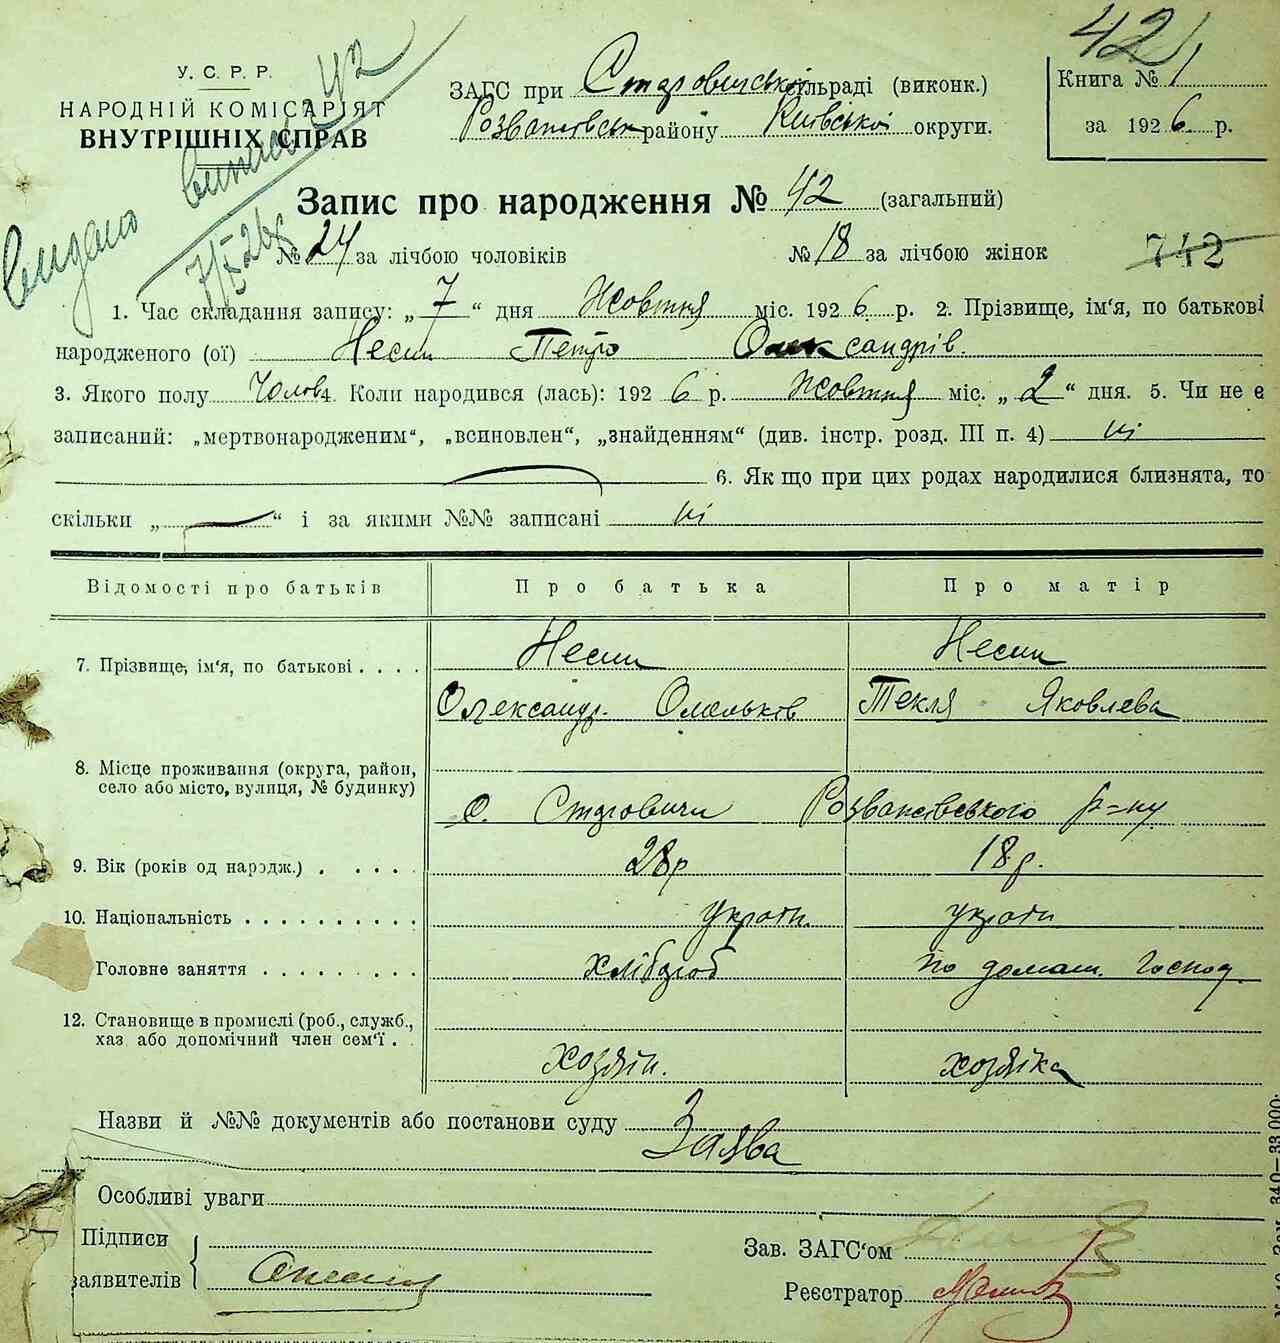 42
У. С. Р. Р.
НАРОДНІЙ КОМІСАРІЯТ
ВНУТРІШНІХ СПРАВ
Видано
42
ЗАГС при Старовичській сільраді (виконк.)
Розважівськ району Київської округи.
Книга № 1
за 1926 р.
Запис про народження № 42 (загальний)
№ 24 за лічбою чоловіків № 18 за лічбою жінок
742
1. Час складання запису: „ 7 “ дня Жовтня міс. 1926 р. 2. Прізвище, ім'я, по батькові
народженого (ої) Несин Петро Олександрів.
3. Якого полу Чолов 4. Коли народився (лась): 1926 р. Жовтня міс. „ 2 “ дня. 5. Чи не є
записаний: „мертвонародженим“, „всиновлен“, „знайденням“ (див. інстр. розд. III п. 4) ні
6. Як що при цих родах народилися близнята, то
скільки „ — “ і за якими №№ записані ні
Відомості про батьків Про батька Про матір
7. Прізвище, ім'я, по батькові . . . . Несин Несин
Олександр. Омельків Текля Яковлева
8. Місце проживання (округа, район,
село або місто, вулиця, № будинку)
с. Старовичи Розважівського р-ну
9. Вік (років од народж.) . . . . . 28 р 18 р.
10. Національність . . . . . . . . . . Україн. україн
Головне заняття . . . . . . . . . хлібороб по домаш. господ.
12. Становище в промислі (роб., служб.,
хаз або допомічний член сем'ї .
хозяін. хозяіка
Назви й №№ документів або постанови суду Заява
Особливі уваги
Підписи
заявителів
Зав. ЗАГС'ом
Реєстратор